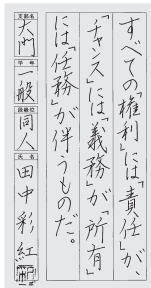 すべての権利には「責任」が、
「チャンス」には「義務」が「所有」
には「任務」が伴うものだ。
支部名
大門
学年
一般
段級位
同人
氏名
田中彩紅